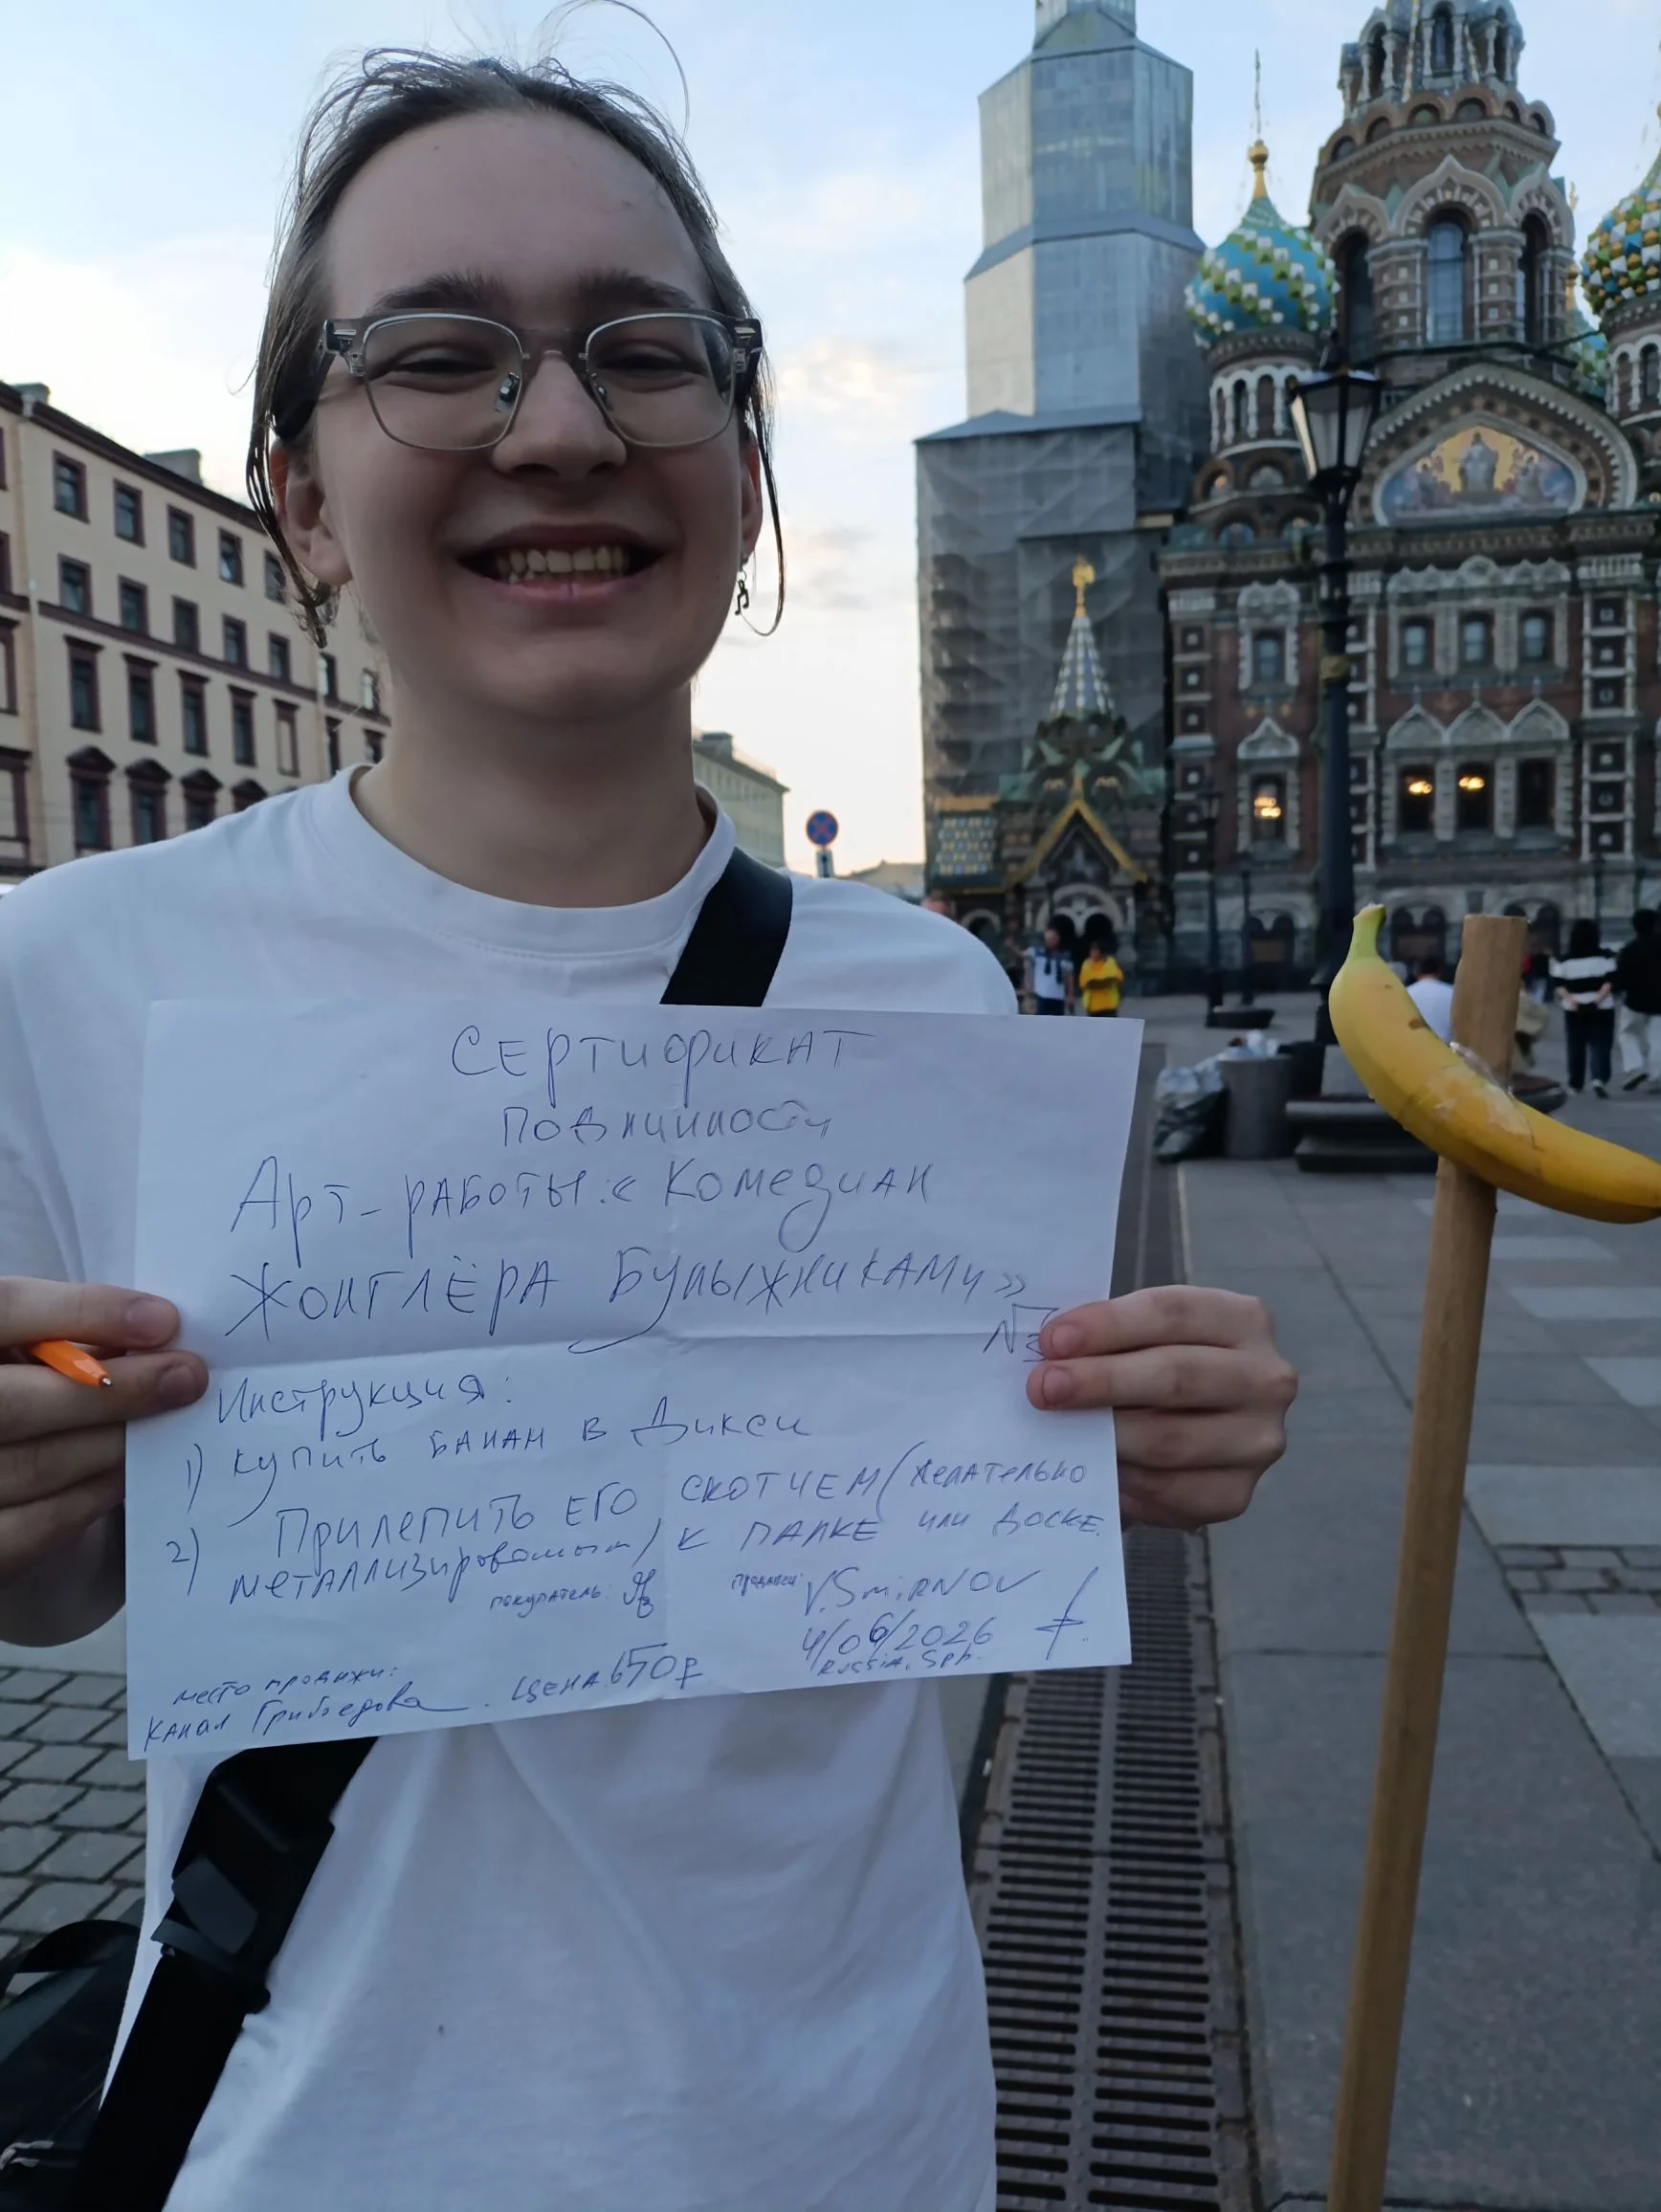 Сертификат
подлинности
Арт-работы: «Комедиан
Жонглёра Булыжниками»
№3
Инструкция:
1) купить банан в Дикси
2) Прилепить его скотчем (желательно
металлизированным) к палке или доске.
покупатель:
продавец: V. SMIRNOV
4/06/2026
RUSSIA, Spb.
место продажи:
Канал Грибоедова. Цена 650 ₽